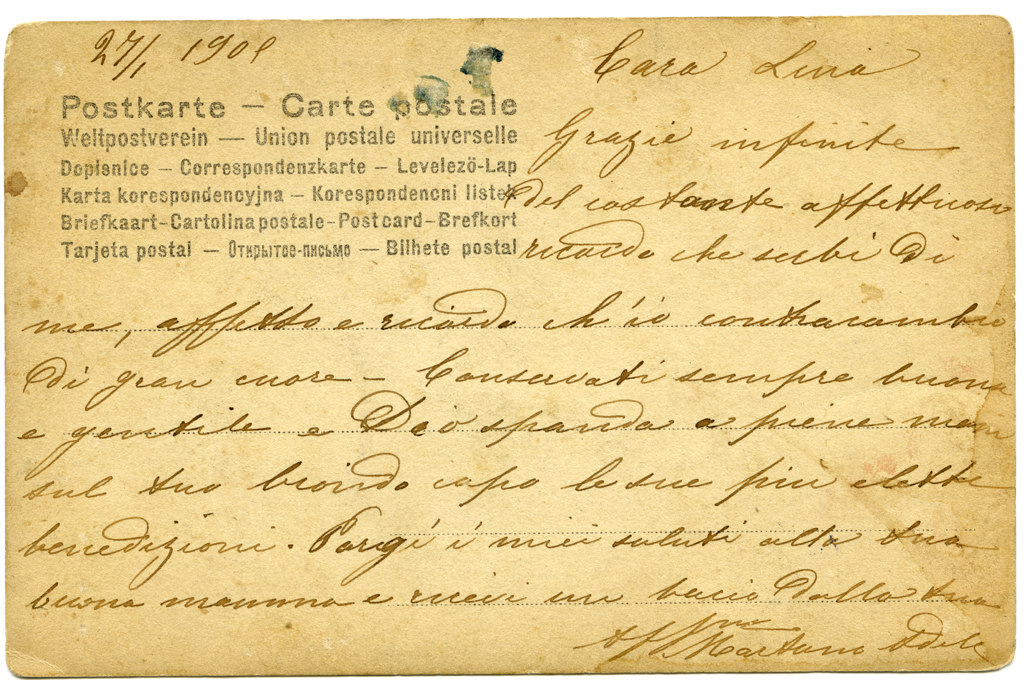 27/1 1901
Postkarte — Carte postale
Weltpostverein — Union postale universelle
Dopisnice — Correspondenzkarte — Levelező-Lap
Karta korespondencyjna — Korespondencni listek
Briefkaart-Cartolina postale-Post card-Brefkort
Tarjeta postal — Открытое-письмо — Bilhete postal
Cara Lina
Grazie infinite
del costante affettuoso
ricordo che serbi di
me, affetto e ricordo ch'io contracambio
di gran cuore — Conservati sempre buona
e gentile e Dio spanda a piene mani
sul tuo biondo capo le sue più elette
benedizioni. Porgi i miei saluti alla tua
buona mamma e ricevi un bacio dalla tua
Aff.ma Adele